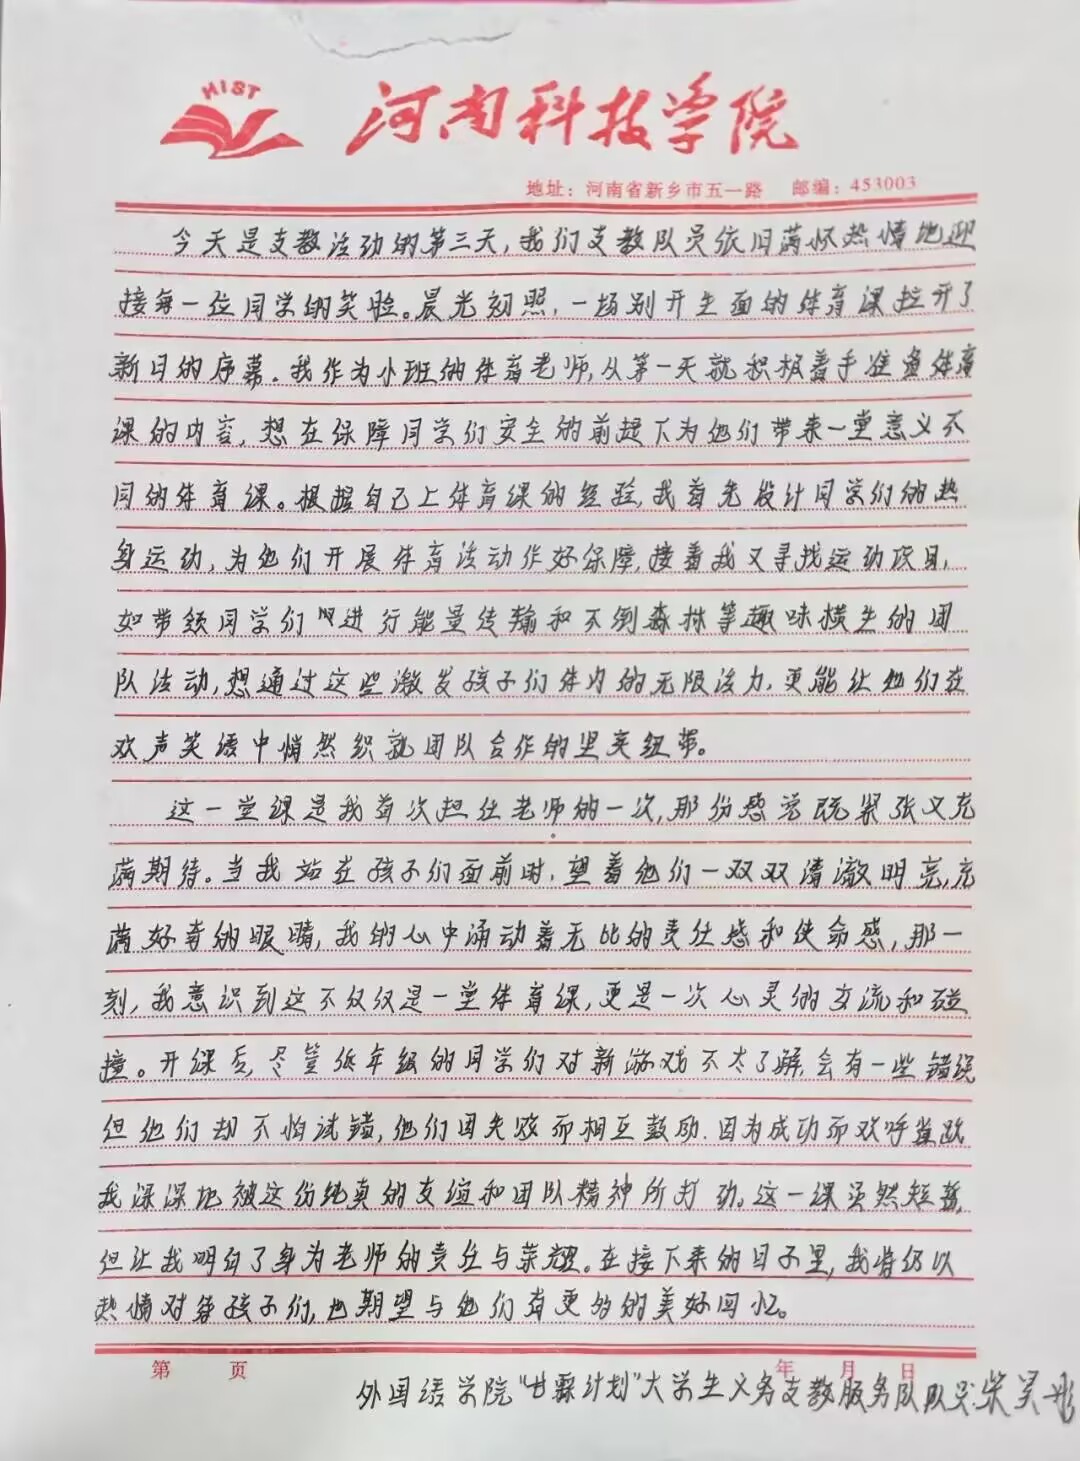 HIST
河南科技学院
地址：河南省新乡市五一路 邮编：453003
今天是支教活动的第三天，我们支教队员依旧满怀热情地迎
接每一位同学的笑脸。晨光初照，一场别开生面的体育课拉开了
新日的序幕。我作为小班的体育老师，从第一天就积极着手准备体育
课的内容，想在保障同学们安全的前提下为他们带来一堂意义不
同的体育课。根据自己上体育课的经验，我首先设计同学们的热
身运动，为他们开展体育活动作好保障，接着我又寻找运动项目，
如带领同学们进行能量传输和不倒森林等趣味横生的团
队活动，想通过这些激发孩子们体内的无限活力，更能让他们在
欢声笑语中悄然织就团队合作的坚实纽带。
这一堂课是我首次担任老师的一次，那份感觉既紧张又充
满期待。当我站在孩子们面前时，望着他们一双双清澈明亮，充
满好奇的眼睛，我的心中涌动着无比的责任感和使命感，那一
刻，我意识到这不仅仅是一堂体育课，更是一次心灵的交流和碰
撞。开课后，尽管低年级的同学们对新游戏不太了解，会有一些错误
但他们却不怕试错，他们因失败而相互鼓励，因为成功而欢呼雀跃
我深深地被这份纯真的友谊和团队精神所打动。这一课虽然短暂，
但让我明白了身为老师的责任与荣耀。在接下来的日子里，我将仍以
热情对待孩子们，也期望与他们有更多的美好回忆。
第 页 年 月 日
外国语学院“甘霖计划”大学生义务支教服务队队员：柴昊彤